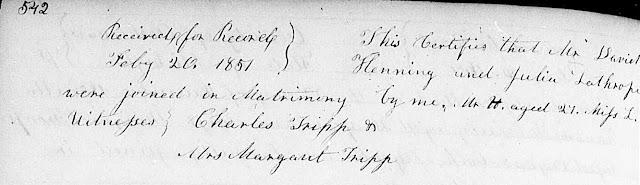 542
Received for Record } This Certifies that Mr David
Feby 20 1851 } Henning and Julia Lathrope
were joined in Matrimony by me, Mr H. aged 27. Miss L.
Witnesses } Charles Tripp &
Mrs Margaret Tripp